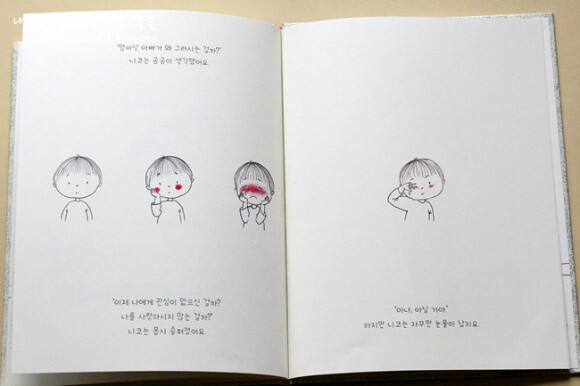 "엄마랑 아빠가 왜 그러시는 걸까?"
니코는 곰곰이 생각했어요.
"이제 나에게 관심이 없으신 걸까?
나를 사랑하시지 않는 걸까?"
니코는 몹시 슬퍼졌어요.
"아냐, 아닐 거야."
하지만 니코는 자꾸만 눈물이 났지요.